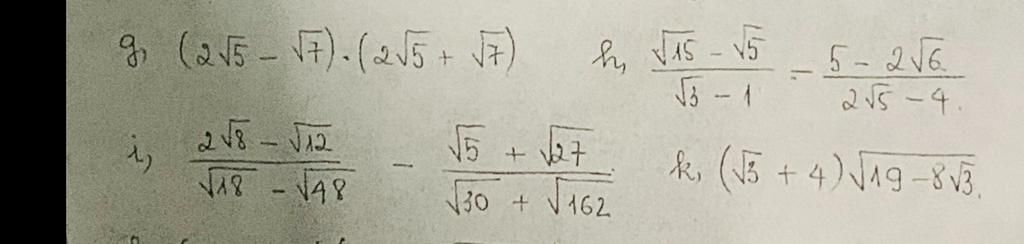 g, (2√5 - √7).(2√5 + √7) h, (√15 - √5)/(√3 - 1) - (5 - 2√6)/(2√5 - 4).
i, (2√8 - √12)/(√18 - √48) - (√5 + √27)/(√30 + √162) k, (√3 + 4)√(19 - 8√3).